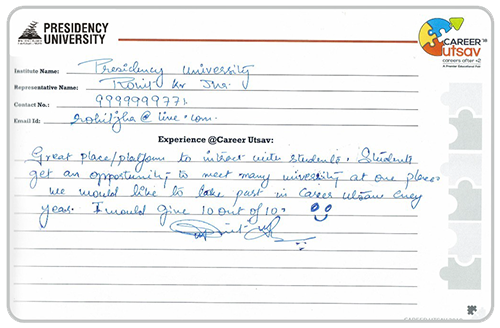 PRESIDENCY
UNIVERSITY
CAREER
utsav
careers after +2
A Premier Educational Fair
Institute Name: Presidency University
Representative Name: Rohit Kr Jha
Contact No.: 9999999771
Email Id: rohitjha@live.com
Experience @Career Utsav:
Great place/platform to intract with students. Students
get an opportunity to meet many university at one place
we would like to take part in Career utsav every
year. I would give 10 out of 10.